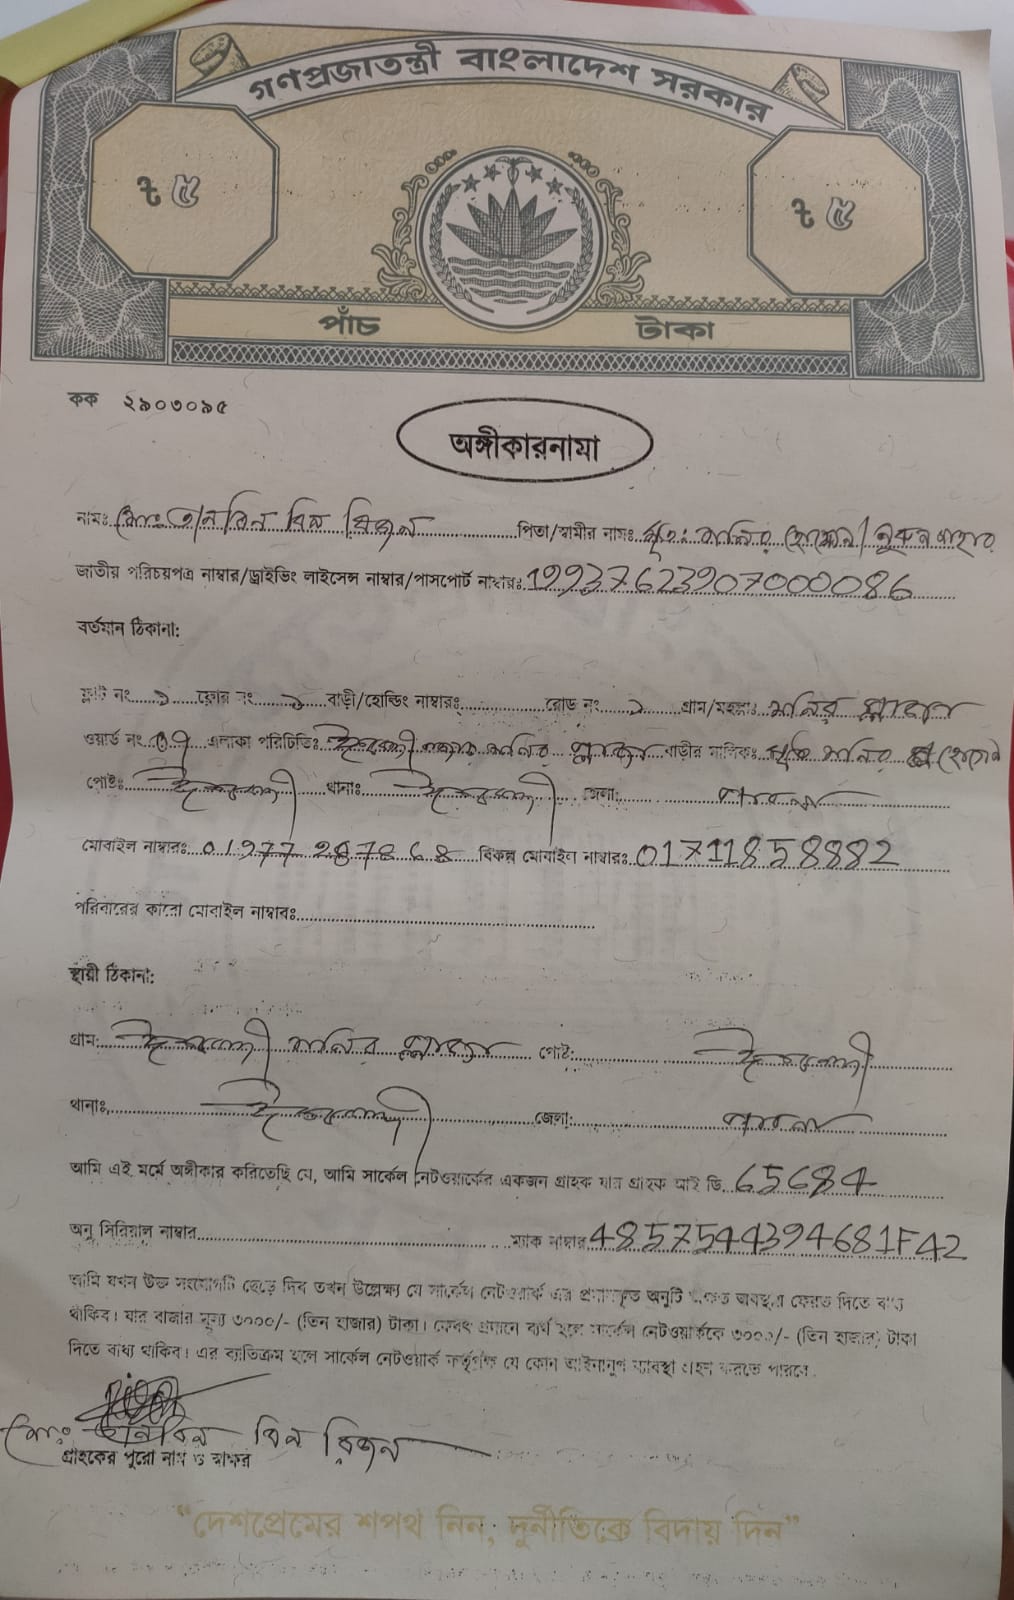 গণপ্রজাতন্ত্রী বাংলাদেশ সরকার
৳ ৫ ৳ ৫
পাঁচ টাকা
কক ২৯০৩০৯৫
অঙ্গীকারনামা
নামঃ মোঃ তানবিন বিন রিজন পিতা/স্বামীর নামঃ মৃতঃ মনির হোসেন/নুরুন নাহার
জাতীয় পরিচয়পত্র নাম্বার/ড্রাইভিং লাইসেন্স নাম্বার/পাসপোর্ট নাম্বারঃ 19937623907000086
বর্তমান ঠিকানা:
ফ্লাট নং ১ ফ্লোর নং ১ বাড়ী/হোল্ডিং নাম্বারঃ রোড নং ১ গ্রাম/মহল্লাঃ মনির প্লাজা
ওয়ার্ড নং 09 এলাকা পরিচিতিঃ ঈশ্বরদী বাজার মনির প্লাজা বাড়ীর মালিকঃ মৃত মনির হোসেন
পোষ্টঃ ঈশ্বরদী থানাঃ ঈশ্বরদী জেলা: পাবনা
মোবাইল নাম্বারঃ 01977 287868 বিকল্প মোবাইল নাম্বারঃ 01711858882
পরিবারের কারো মোবাইল নাম্বারঃ
স্থায়ী ঠিকানা:
গ্রাম: ঈশ্বরদী মনির প্লাজা পোষ্ট: ঈশ্বরদী
থানাঃ ঈশ্বরদী জেলা: পাবনা
আমি এই মর্মে অঙ্গীকার করিতেছি যে, আমি সার্কেল নেটওয়ার্কের একজন গ্রাহক যার গ্রাহক আই ডি 65684
অনু সিরিয়াল নাম্বার ম্যাক নাম্বার 4857544394681F42
আমি যখন উক্ত সংযোগটি ছেড়ে দিব তখন উল্লেক্ষ্য যে সার্কেল নেটওয়ার্ক এর প্রদানকৃত অনুটি অক্ষত অবস্থায় ফেরত দিতে বাধ্য
থাকিব। যার বাজার মূল্য ৩০০০/- (তিন হাজার) টাকা। ফেরৎ প্রদানে ব্যর্থ হলে সার্কেল নেটওয়ার্ককে ৩০০০/- (তিন হাজার) টাকা
দিতে বাধ্য থাকিব। এর ব্যতিক্রম হলে সার্কেল নেটওয়ার্ক কর্তৃপক্ষ যে কোন আইনানুগ ব্যবস্থা গ্রহন করতে পারবে।
মোঃ তানবিন বিন রিজন
গ্রাহকের পুরো নাম ও স্বাক্ষর
“দেশপ্রেমের শপথ নিন, দুর্নীতিকে বিদায় দিন”